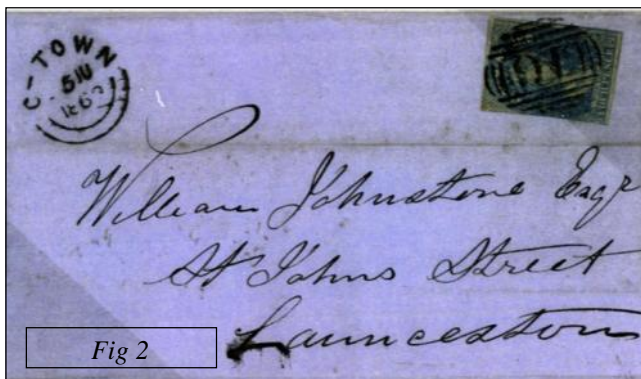 C-TOWN
5 JU
186
William Johnstone Esqr
St Johns Street
Launceston
Fig 2